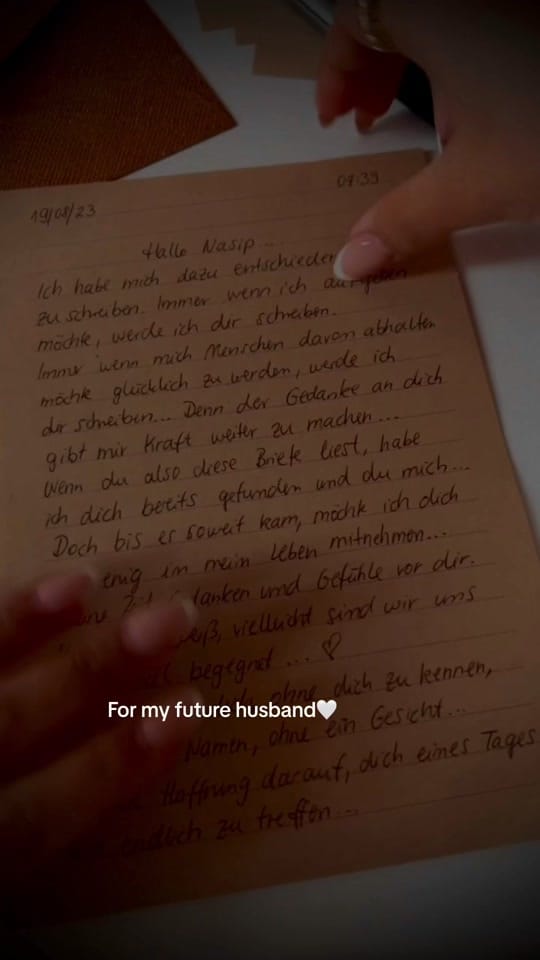 19/08/23
07:39
Hallo Nasip...
Ich habe mich dazu entschieden
zu schreiben. Immer wenn ich aufgeben
möchte, werde ich dir schreiben.
Immer wenn mich Menschen davon abhalten
möchte glücklich zu werden, werde ich
dir schreiben... Denn der Gedanke an dich
gibt mir Kraft weiter zu machen...
Wenn du also diese Briefe liest, habe
ich dich bereits gefunden und du mich...
Doch bis es soweit kam, möchte ich dich
in mein Leben mitnehmen...
und Gefühle vor dir.
vielleicht sind wir uns
begegnet... ♡
ohne dich zu kennen,
For my future husband🤍
Namen, ohne ein Gesicht...
Hoffnung darauf, dich eines Tages
endlich zu treffen...